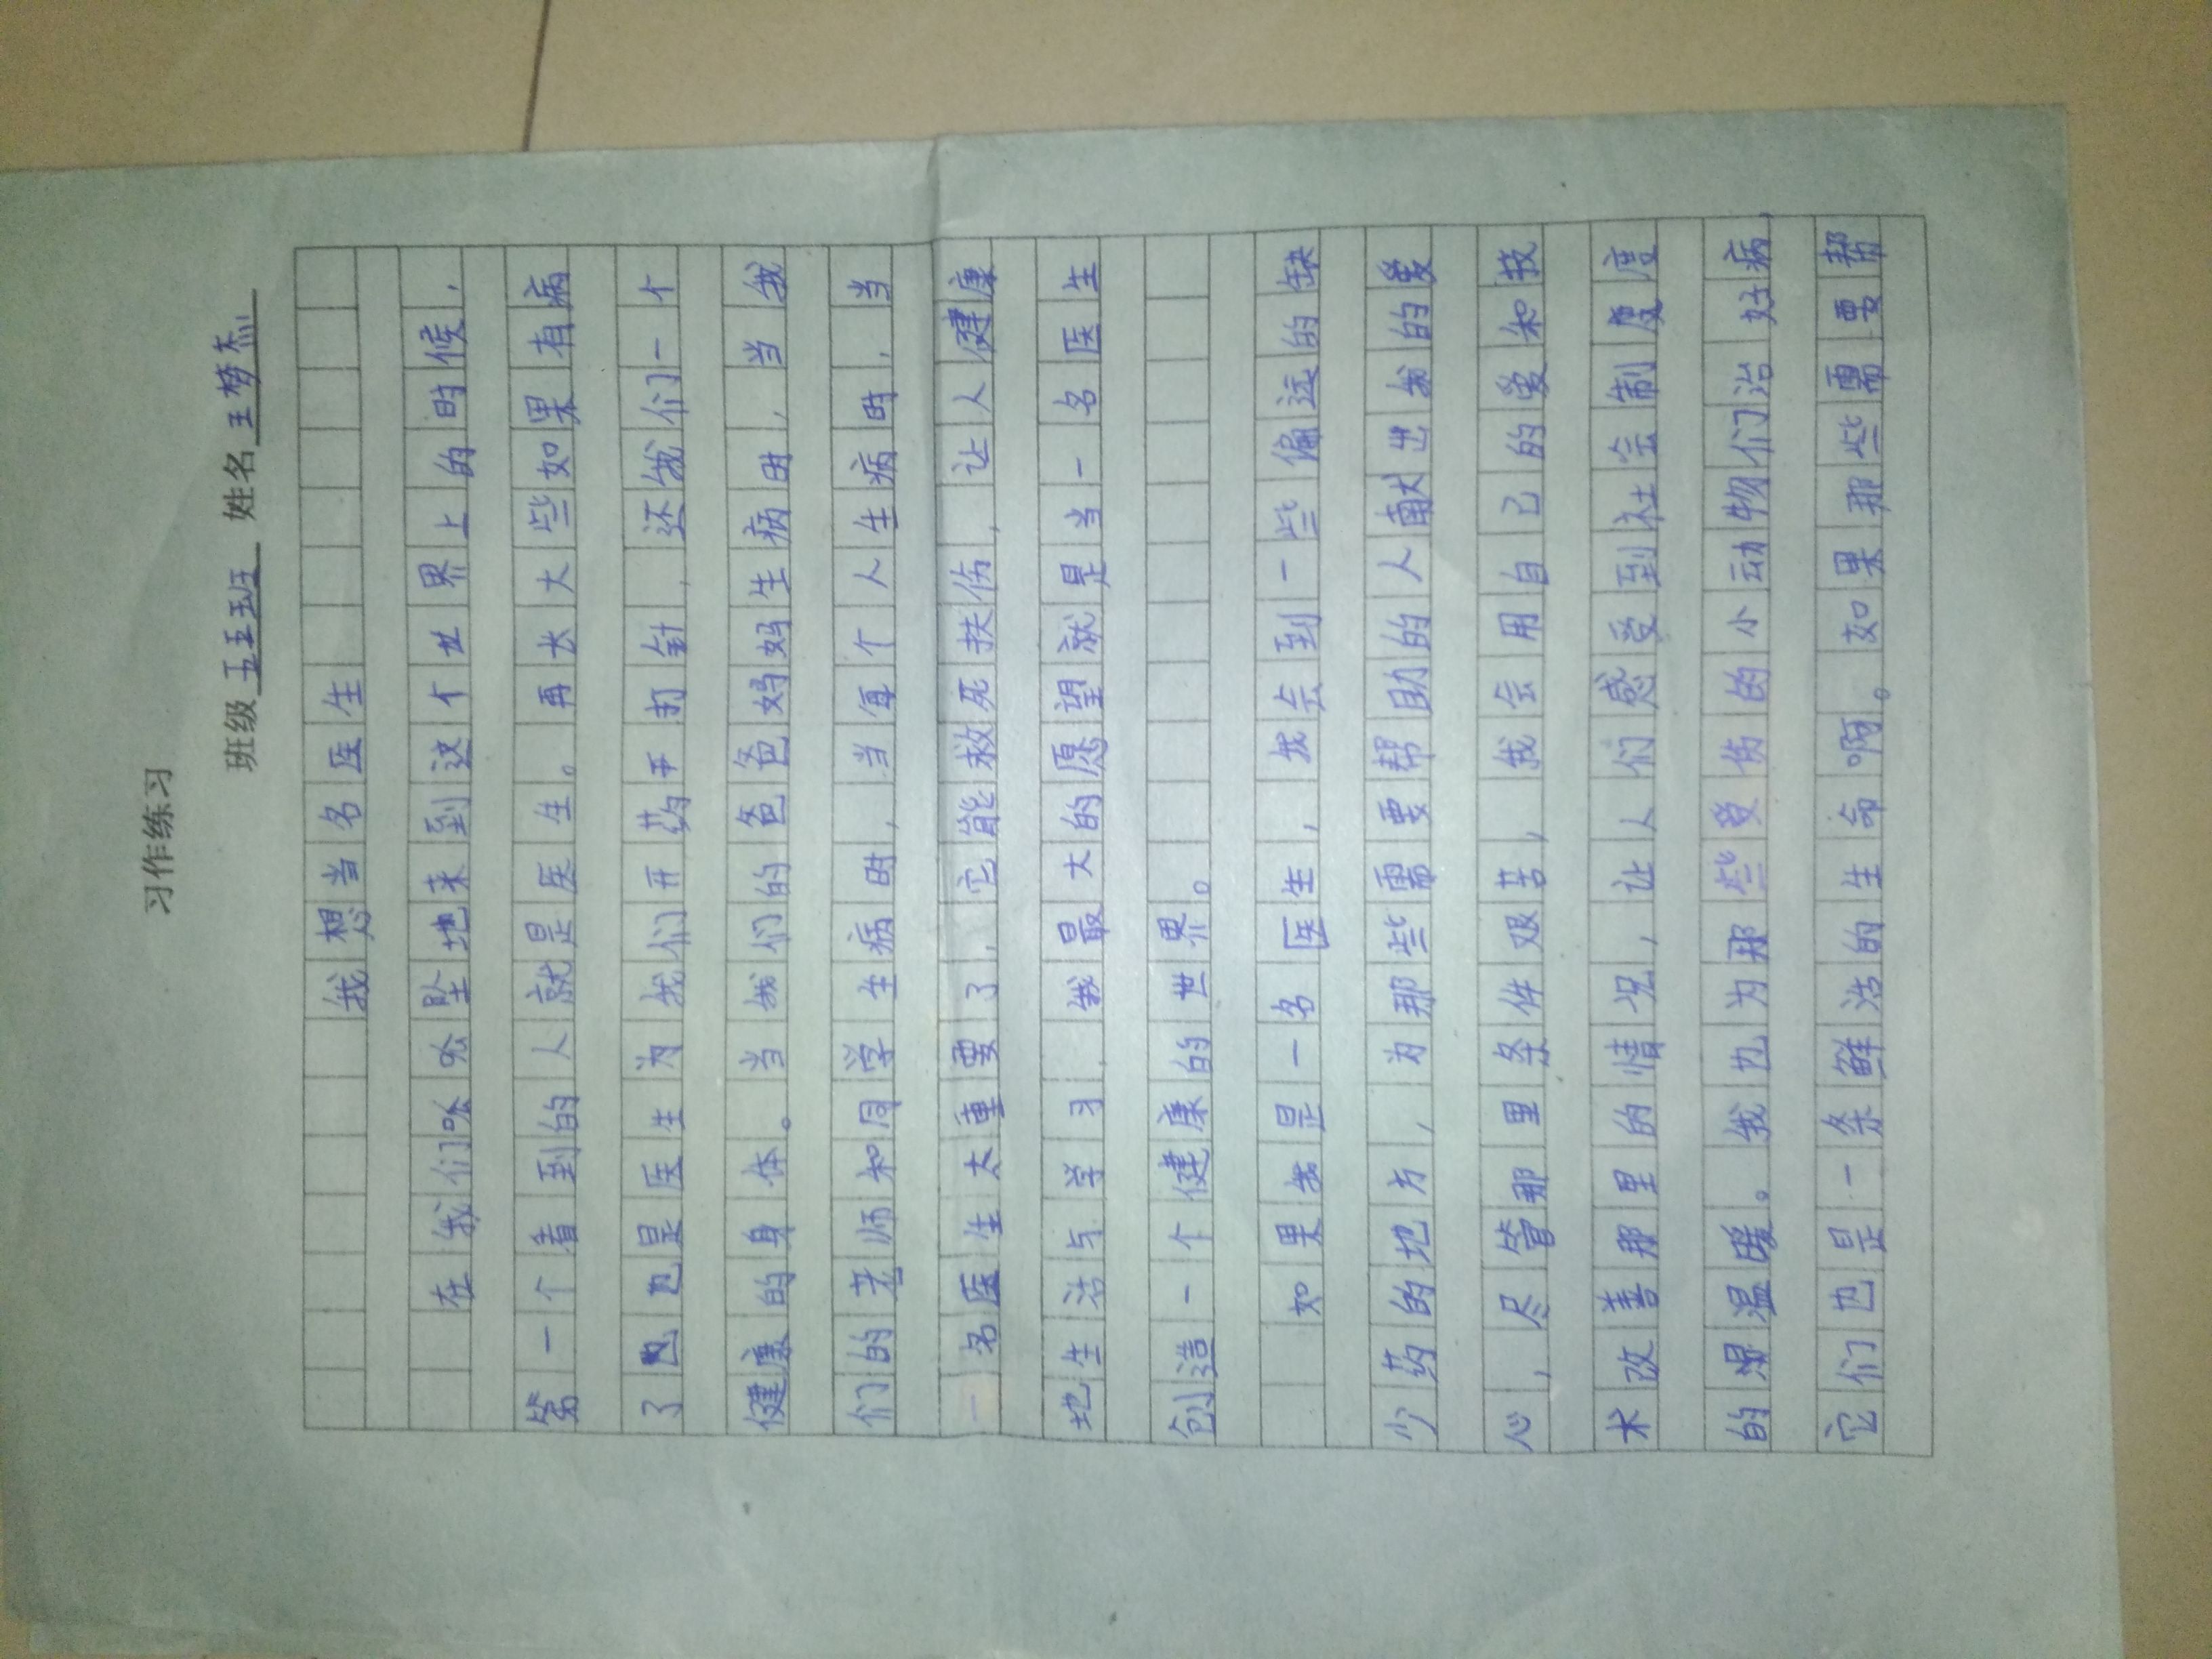 习作练习
班级 五五班 姓名 王梦杰
我想当名医生
在我们呱呱坠地来到这个世界上的时候，
第一个看到的人就是医生。再长大些如果有病
了也是医生为我们开药开打针，还我们一个
健康的身体。当我们的爸爸妈妈生病时，当我
们的老师和同学生病时，当每个人生病时，当
一名医生太重要了，它能救死扶伤，让人健康
地生活与学习，我最大的愿望就是当一名医生
创造一个健康的世界。
如果我是一名医生，我会到一些偏远的缺
少药的地方，为那些需要帮助的人献出我的爱
心，尽管那里条件艰苦，我会用自己的爱和技
术改善那里的情况，让人们感受到社会制度
的温暖。我也为那些受伤的小动物们治好病，
它们也是一条鲜活的生命啊。如果那些需要帮